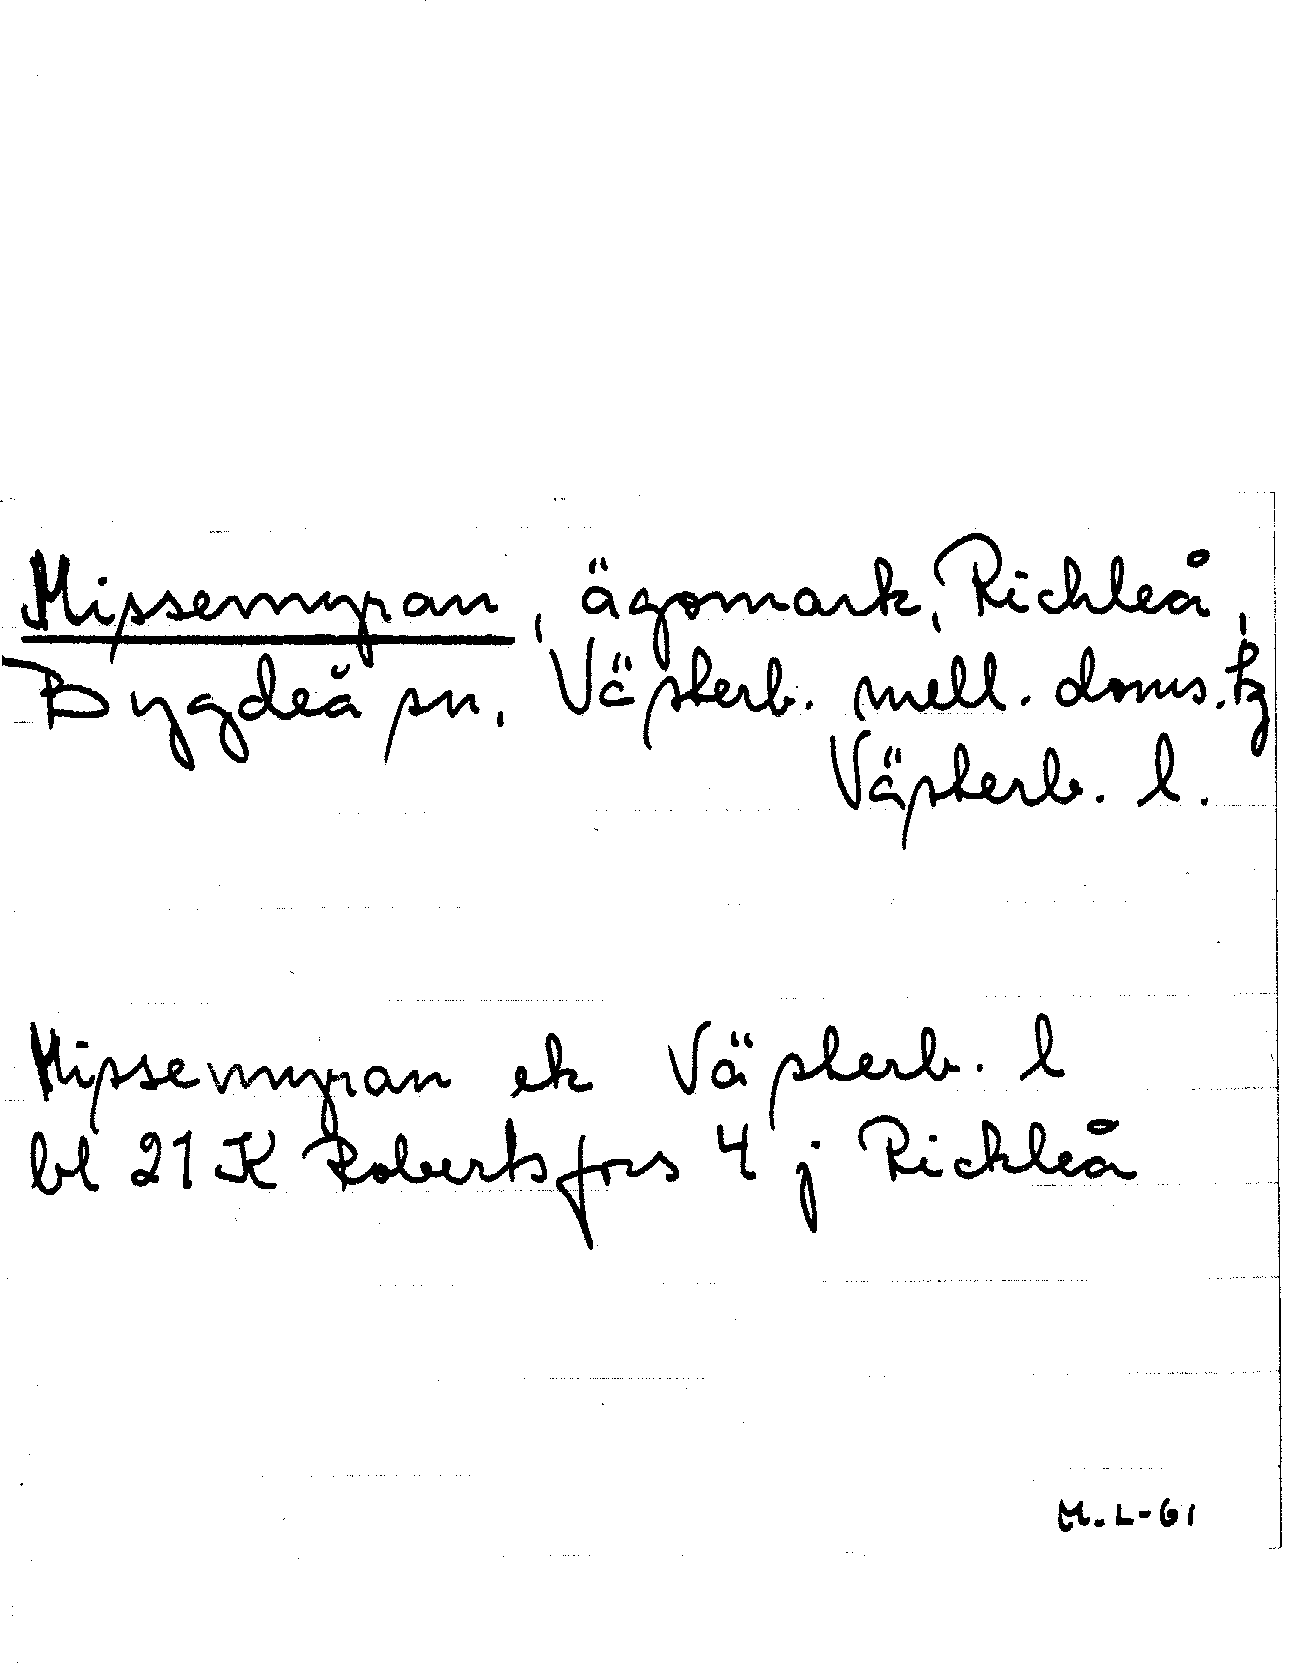 Missemyran, ägomark, Rickleå,
Bygdeå sn, Västerb. mell. doms. tg
Västerb. l.
Missemyran ek Västerb. l
bl 21 K Robertsfors 4 j Rickleå
M.L-61